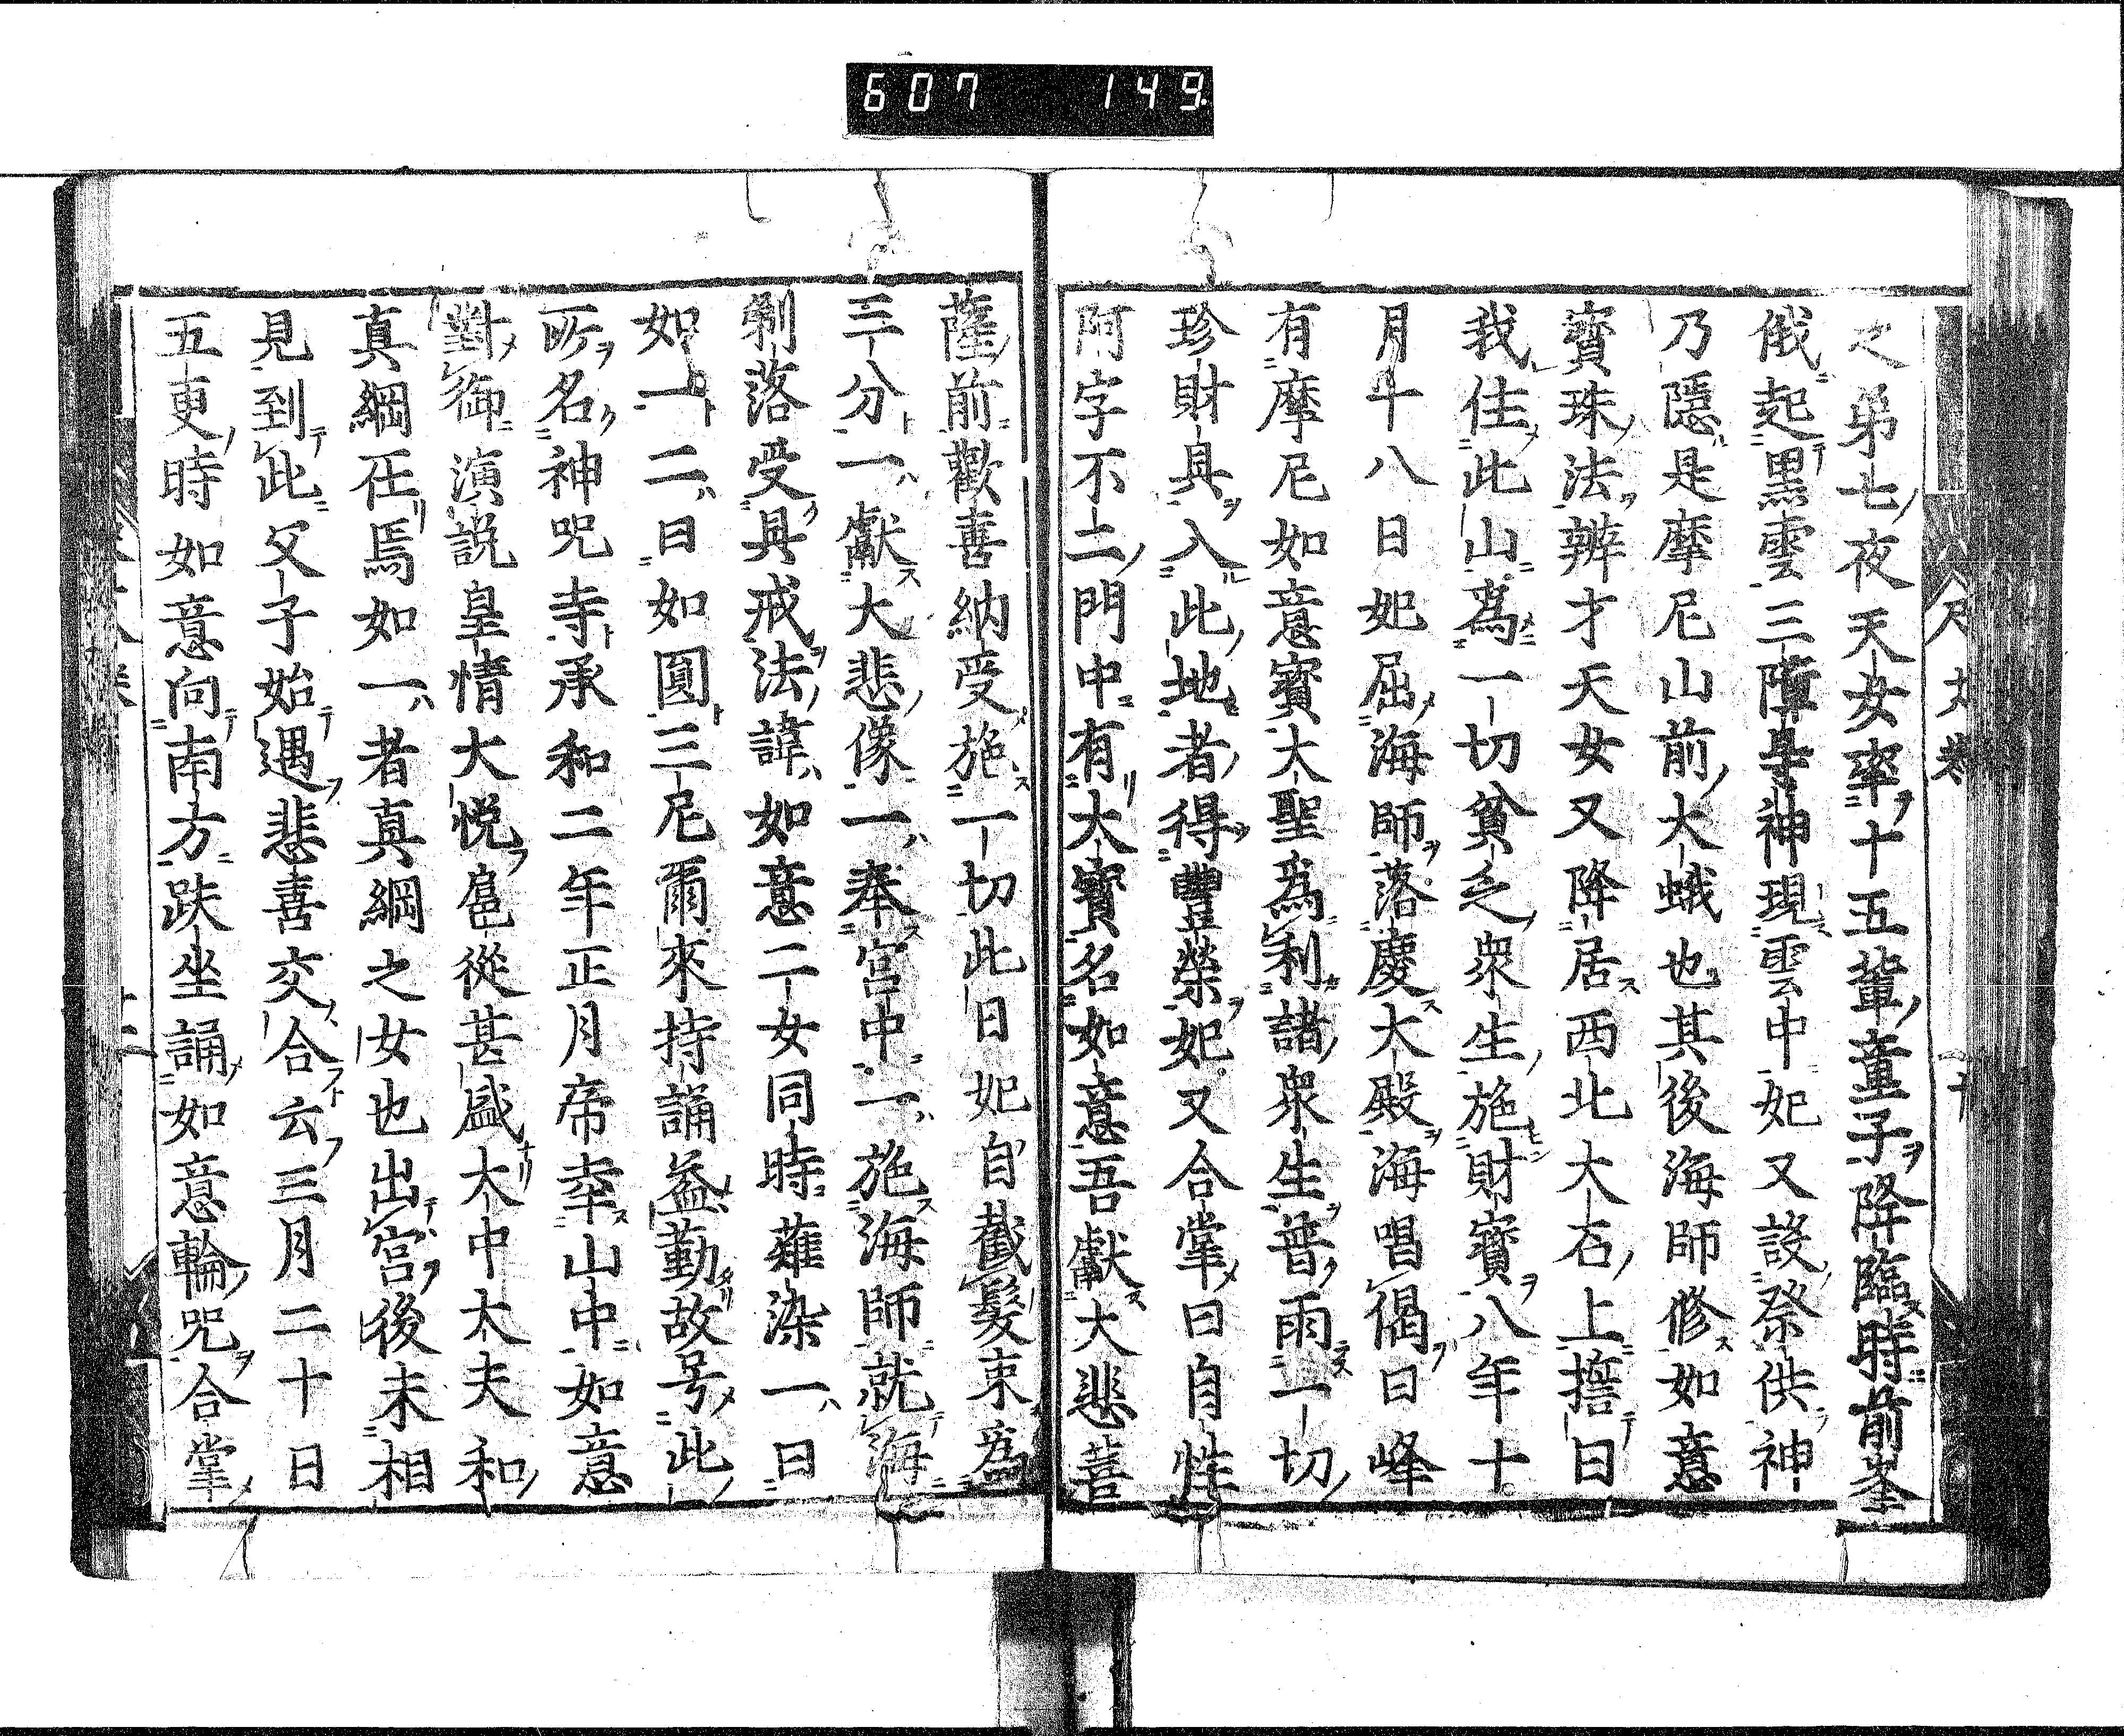 607 149
之弟七夜天女率十五輩童子降臨時前峯
俄起黒雲三障㝵神現雲中妃又設祭供神
乃隱是摩尼山前大蛾也其後海師修如意
寳珠法辨才天女又降居西北大石上誓曰
我住此山為一切貧乏衆生施財寳八年十
月十八日妃屈海師落慶大殿海唱偈曰峰
有摩尼如意寳大聖為利諸衆生普雨一切
珍財具入此地者得豐榮妃又合掌曰自性
阿字不二門中有大寳名如意吾獻大悲菩
薩前歡喜納受施一切此日妃自截髮束為
三分一獻大悲像一奉宮中一施海師就海
剃落受具戒法諱如意二女同時薙染一曰
如一二曰如圓三尼爾來持誦益勤故号此
所名神呪寺承和二年正月帝幸山中如意
對御演説皇情大悦扈從甚盛大中太夫和
真綱在焉如一者真綱之女也出宮後未相
見到此父子始遇悲喜交合云三月二十日
五更時如意向南方趺坐誦如意輪呪合掌